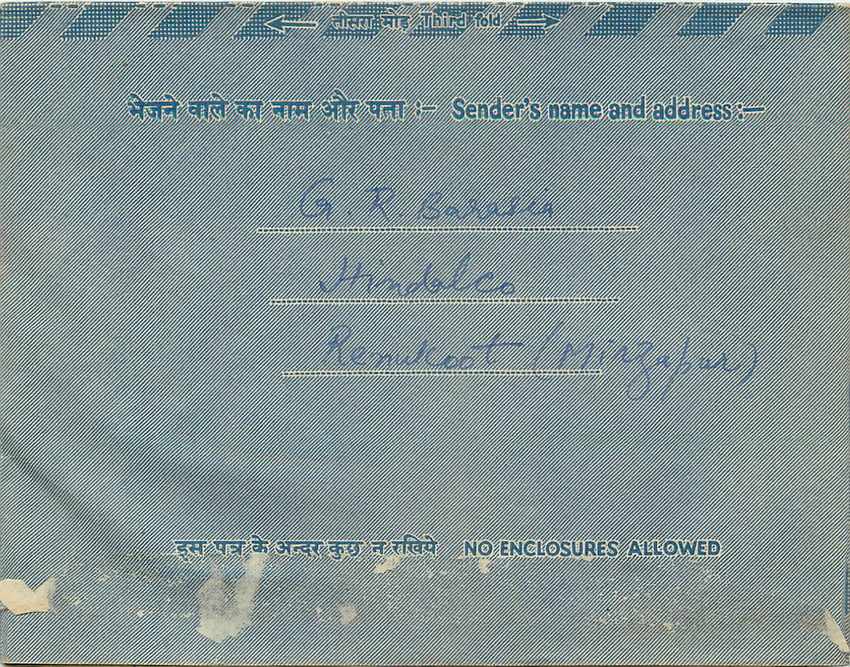 तीसरा मोड़ Third fold
भेजने वाले का नाम और पता :— Sender's name and address :—
G. R. Barasia
Hindalco
Renukoot (Mirzapur)
इस पत्र के अन्दर कुछ न रखिये NO ENCLOSURES ALLOWED